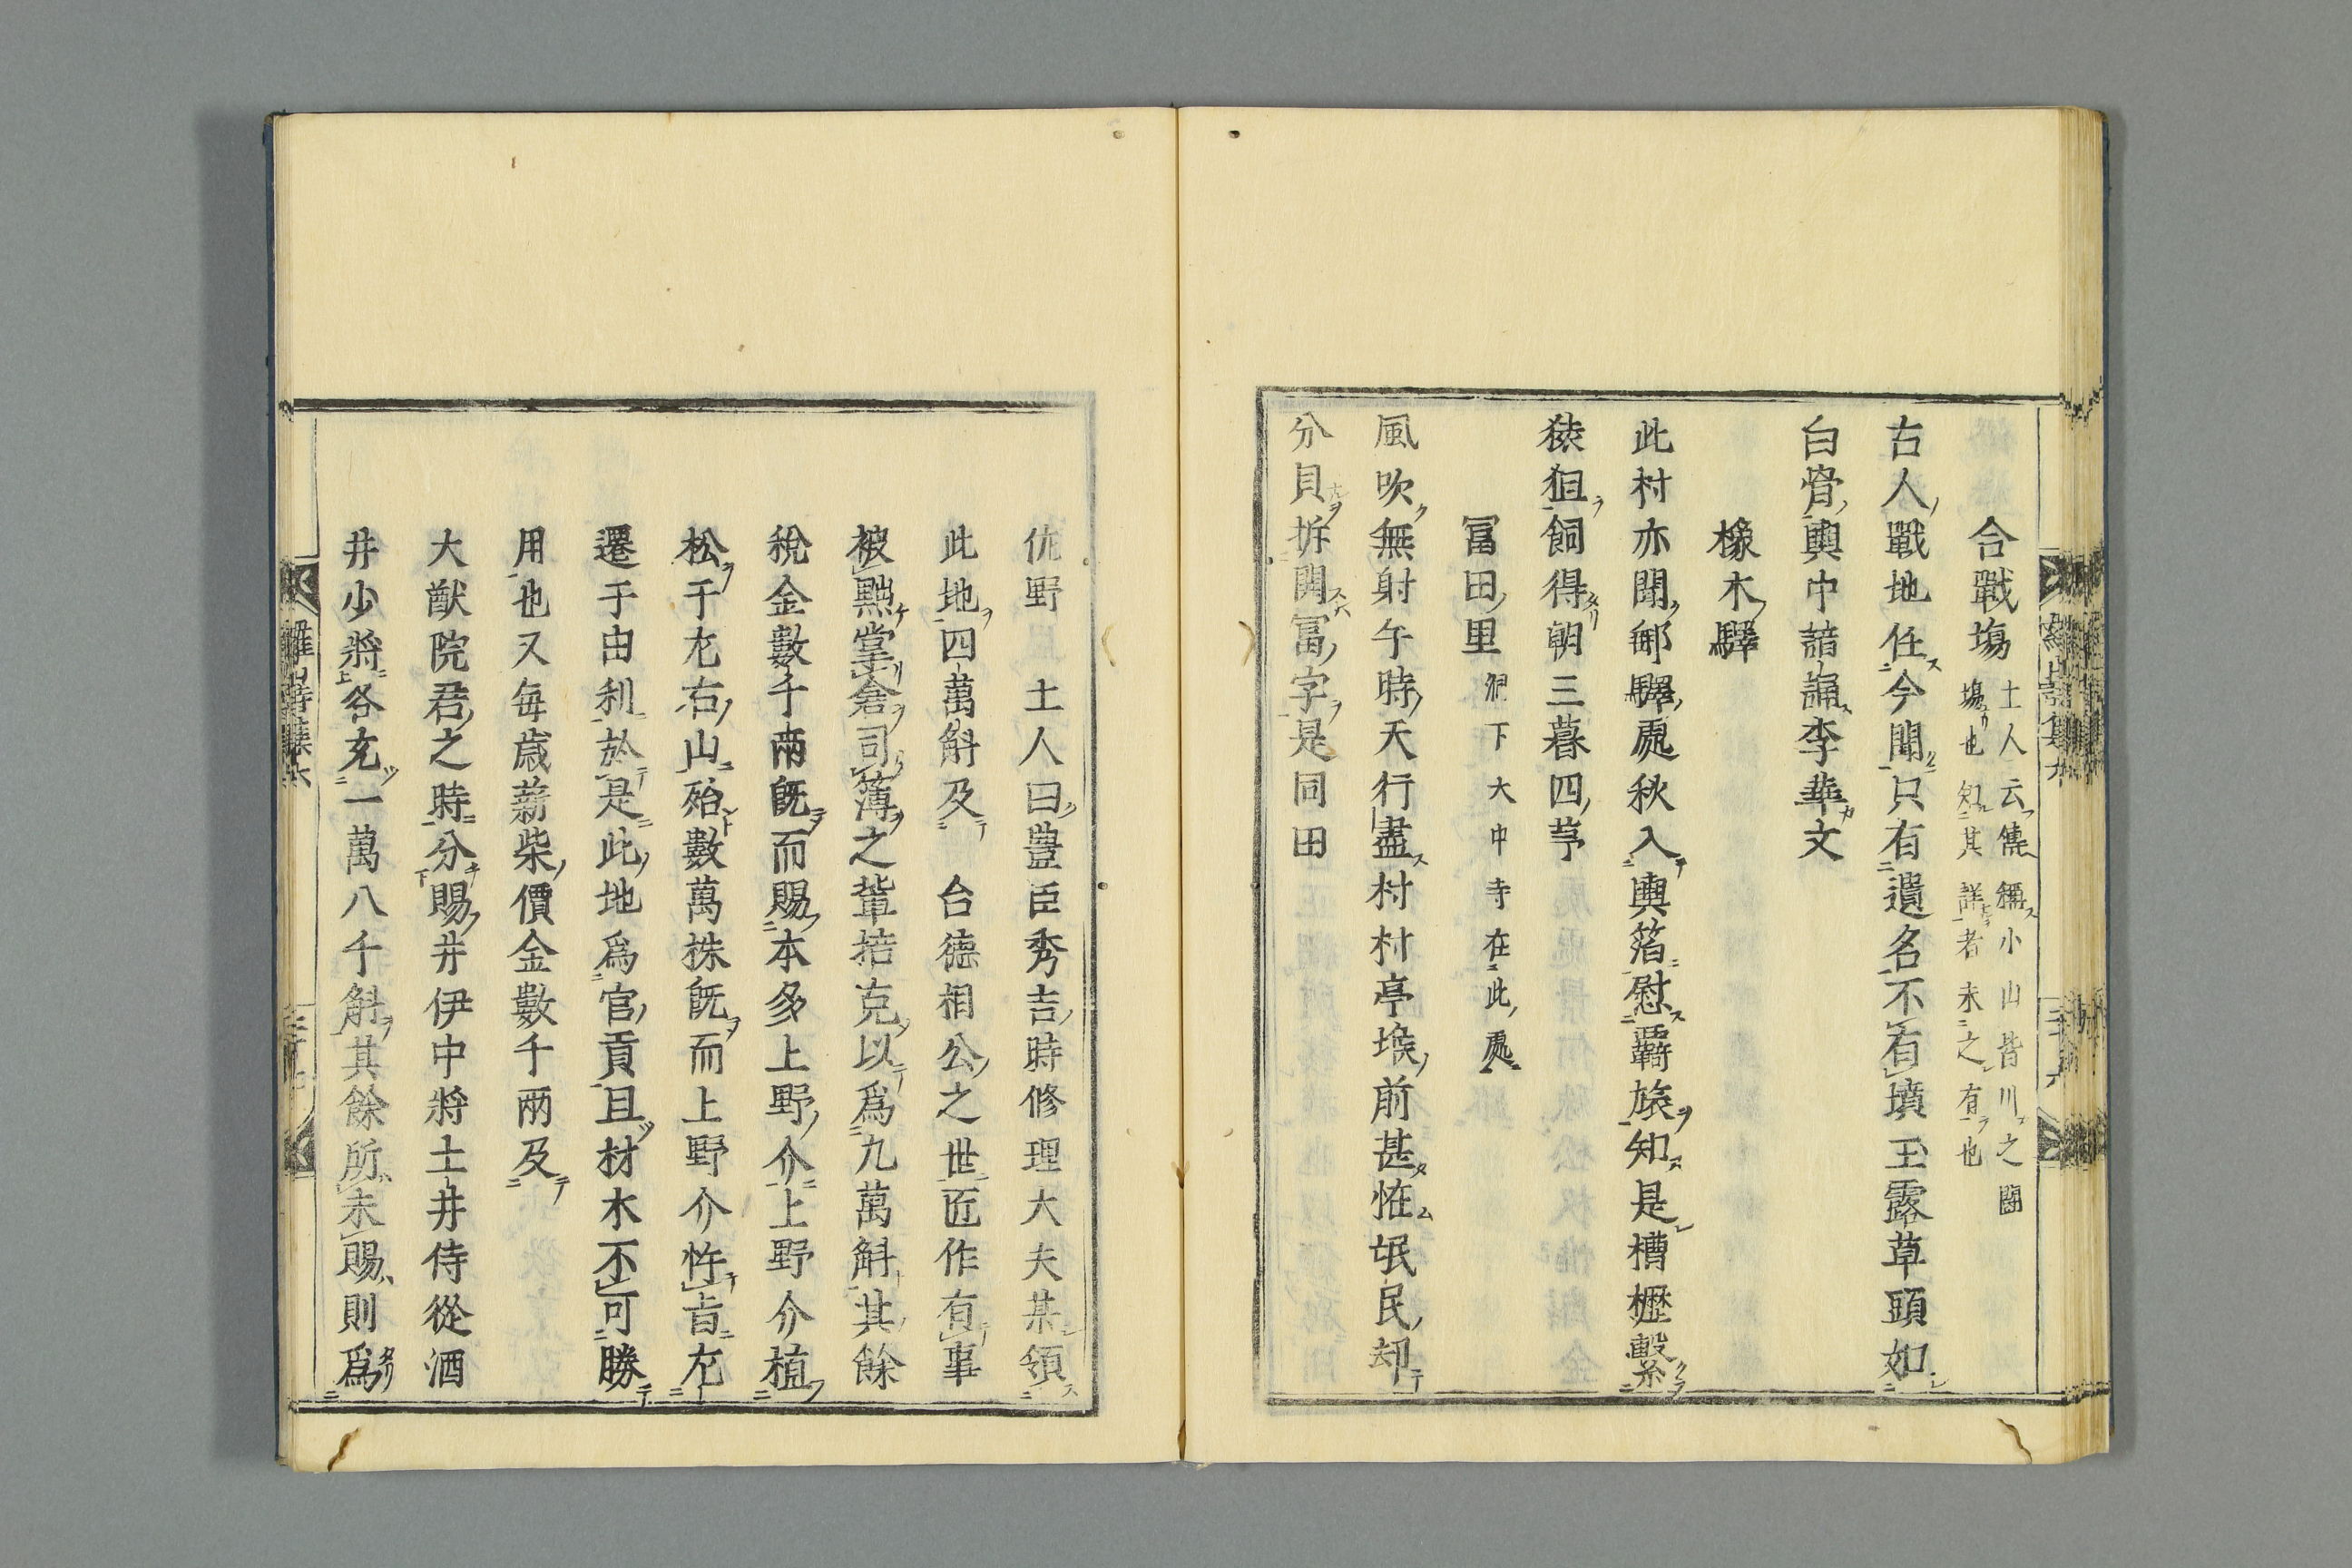 合戰塲 土人云傳稱小山皆川之鬪
塲也知其詳者未之有也
古人戰地任今聞只有遺名不看墳玉露草頭如
白骨輿中諳誦李華文
橡木驛
此村亦聞郵驛處秋入輿箔慰覊旅知是槽櫪繫
猿狙飼得朝三暮四芧
冨田里 洞下大中寺在此處
風吹無射午時天行盡村村亭堠前甚恠氓民却
分貝拆開冨字是同田
佐野 土人曰豊臣秀吉時修理大夫某領
此地四萬斛及 台德相公之世匠作有事
被黜掌倉司薄之輩掊克以爲九萬斛其餘
稅金數千兩旣而賜本多上野介上野介植
松于左右山殆數萬株旣而上野介忤旨左
遷于由利於是此地爲官貢且材木不可勝
用也又每歲薪柴價金數千兩及
大猷院君之時分賜井伊中將土井侍從酒
井少將各充一萬八千斛其餘所未賜則爲